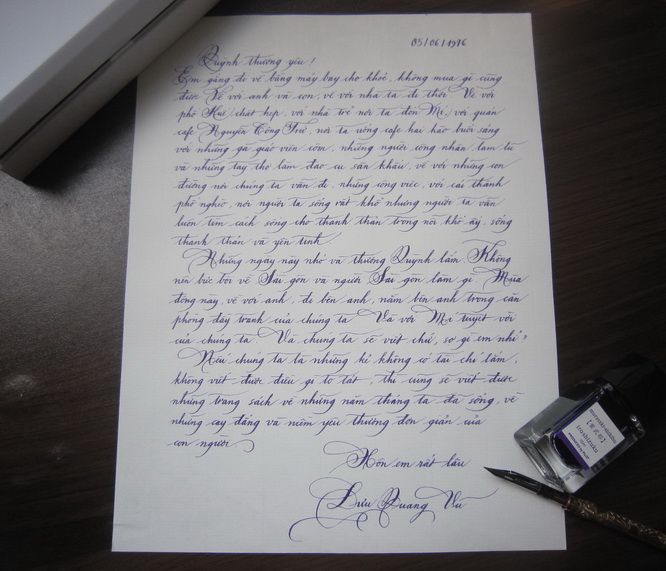 05/06/1976
Quỳnh thương yêu!
Em gắng đi về bằng máy bay cho khoẻ, không mua gì cũng
được. Về với anh và con, về với nhà ta đi thôi. Về với
phố Huế chật hẹp, với nhà trẻ nơi ta đón Mí, với quán
cafe Nguyễn Công Trứ, nơi ta uống cafe hai hào buổi sáng
với những gã giáo viên còm, những người công nhân lam lũ
và những tay thợ làm đạo cụ sân khấu, về với những con
đường nơi chúng ta vẫn đi, những công việc, với cái thành
phố nghèo, nơi người ta sống rất khổ nhưng người ta vẫn
luôn tìm cách sống cho thanh thản trong nỗi khổ ấy, sống
thanh thản và yên tĩnh
Những ngày này nhớ và thương Quỳnh lắm. Không
nên bực bội về Sài gòn và người Sài gòn làm gì. Mùa
đông này, về với anh, đi bên anh, nằm bên anh trong căn
phòng đầy tranh của chúng ta. Và với Mí tuyệt vời
của chúng ta. Và chúng ta sẽ viết chứ, sợ gì em nhỉ?
Nếu chúng ta là những kẻ không có tài chi lắm,
không viết được điều gì to tát, thì cũng sẽ viết được
những trang sách về những năm tháng ta đã sống, về
những cay đắng và niềm yêu thương đơn giản của
con người
Hôn em rất lâu
Lưu Quang Vũ
iroshizuku